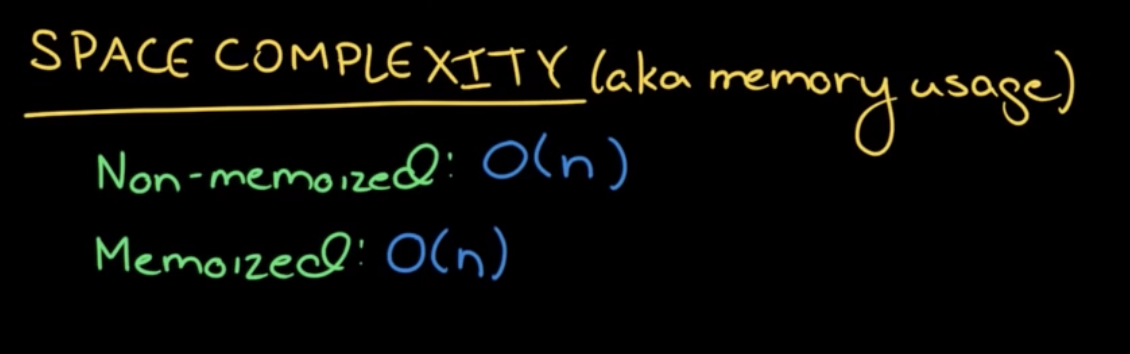 SPACE COMPLEXITY (aka memory usage)
Non-memoized: O(n)
Memoized: O(n)